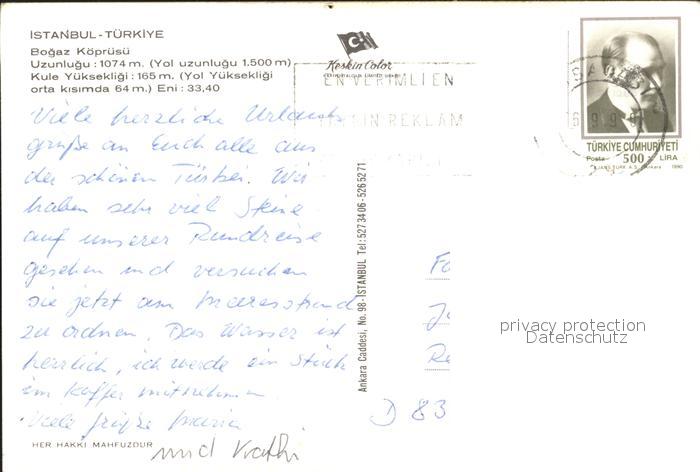 İSTANBUL - TÜRKİYE
Boğaz Köprüsü
Uzunluğu : 1074 m. (Yol uzunluğu 1.500 m)
Kule Yüksekliği : 165 m. (Yol Yüksekliği
orta kısımda 64 m.) Eni : 33,40
Keskin Color
EN VERİMLİ EN
REKLAM
TÜRKİYE CUMHURİYETİ
Posta 500 LİRA
AJANS-TÜRK A.Ş. Ankara 1990
Viele herzliche Urlaubs
grüße an Euch alle aus
der schönen Türkei. Wir
haben sehr viel Steine
auf unserer Rundreise
gesehen und versuchen
sie jetzt am Meeresstrand
zu ordnen. Das Wasser ist
herrlich, ich werde ein Stück
im Koffer mitnehmen.
Viele Grüße Maria
und Kathi
HER HAKKI MAHFUZDUR
Ankara Caddesi, No. 98 - İSTANBUL Tel: 5273406-5265271
D 83
privacy protection
Datenschutz